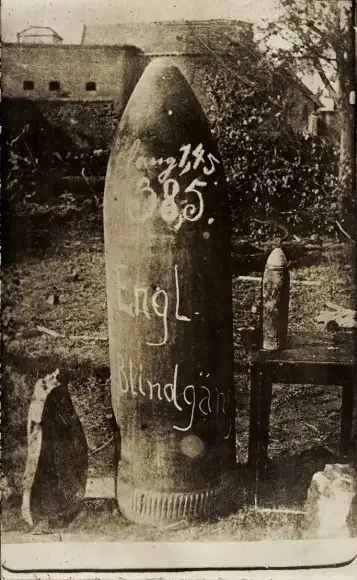 lang 1,45
38,5.
Engl.
Blindgän